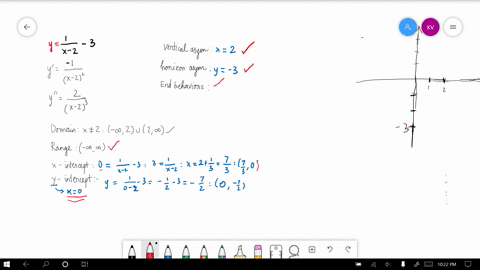 y = 1/(x-2) - 3
y' = -1/(x-2)²
y'' = 2/(x-2)³
Vertical asym: x = 2 ✓
horizon asym: y = -3 ✓
End behaviors: ✓
Domain: x ≠ 2: (-∞, 2) ∪ (2, ∞) ✓
Range: (-∞, ∞) ✓
x - intercept: 0 = 1/(x-2) - 3 : 3 = 1/(x-2) : x = 2 + 1/3 = 7/3 : (7/3, 0)
y - intercept: y = 1/(0-2) - 3 = -1/2 - 3 = -7/2 : (0, -7/2)
↳ x = 0
1 2
-3
KV
10:22 PM